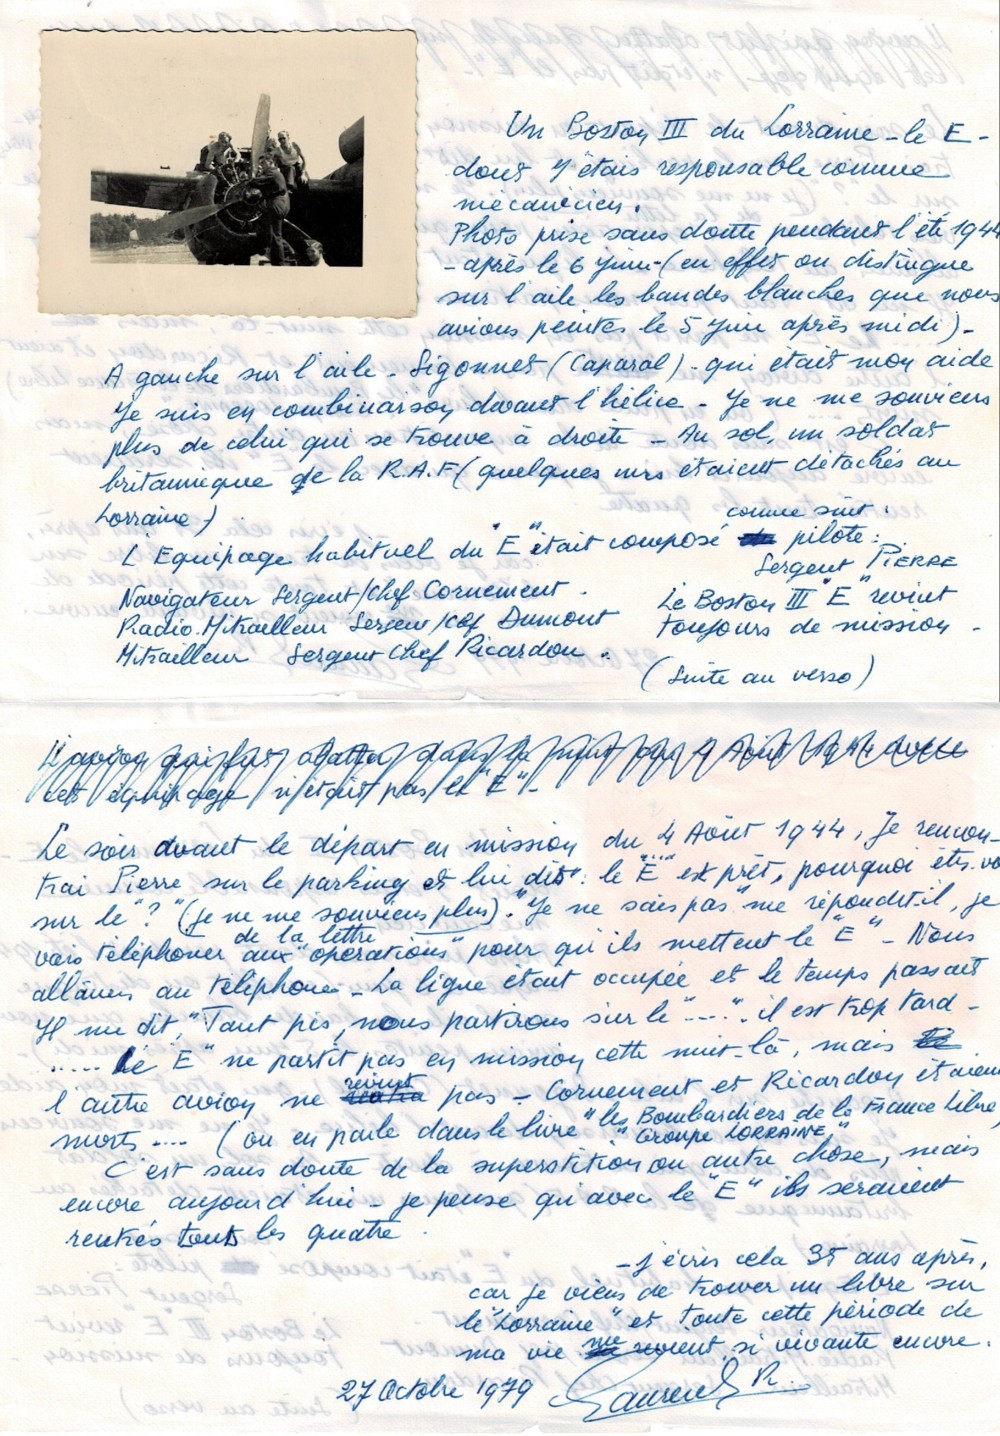 Un Boston III du Lorraine - le E -
dont j'étais responsable comme
mécanicien.
Photo prise sans doute pendant l'été 1944
- après le 6 juin - (en effet on distingue
sur l'aile les bandes blanches que nous
avions peintes le 5 juin après midi) -
A gauche sur l'aile - Sigonnet (Caporal) - qui était mon aide
Je suis en combinaison devant l'hélice - Je ne me souviens
plus de celui qui se trouve à droite - Au sol, un soldat
britannique de la R.A.F (quelques uns étaient détachés au
Lorraine)
L'Equipage habituel du "E" était composé comme suit : pilote :
Sergent PIERRE
Navigateur Sergent/chef Cornement.
Radio-Mitrailleur Sergent/chef Dumont
Mitrailleur Sergent Chef Ricardou.
Le Boston III "E" revint
toujours de mission -
(Suite au verso)
L'avion qui fut abattu dans la nuit du 4 Août 1944 avec
cet équipage n'était pas le "E" -
Le soir avant le départ en mission du 4 Août 1944, Je rencon-
trai Pierre sur le parking et lui dit : "le "E" est prêt, pourquoi êtes-vo
sur le "? " (je ne me souviens plus de la lettre). "Je ne sais pas" me répondit il, je
vais téléphoner aux "opérations" pour qu'ils mettent le "E" - Nous
allâmes au téléphone - La ligne était occupée et le temps passait
Il me dit, "Tant pis, nous partirons sur le "....." il est trop tard -
..... Le "E" ne partit pas en mission cette nuit-là, mais
l'autre avion ne revint pas - Cornement et Ricardou étaient
morts .... (on en parle dans le livre "les Bombardiers de la France Libre,
"Groupe LORRAINE"
C'est sans doute de la superstition ou autre chose, mais
encore aujourd'hui - je pense qu'avec le "E" ils seraient
rentrés tous les quatre.
- j'écris cela 35 ans après,
car je viens de trouver un libre sur
le "Lorraine" et toute cette période de
ma vie me revient si vivante encore.
27 Octobre 1979